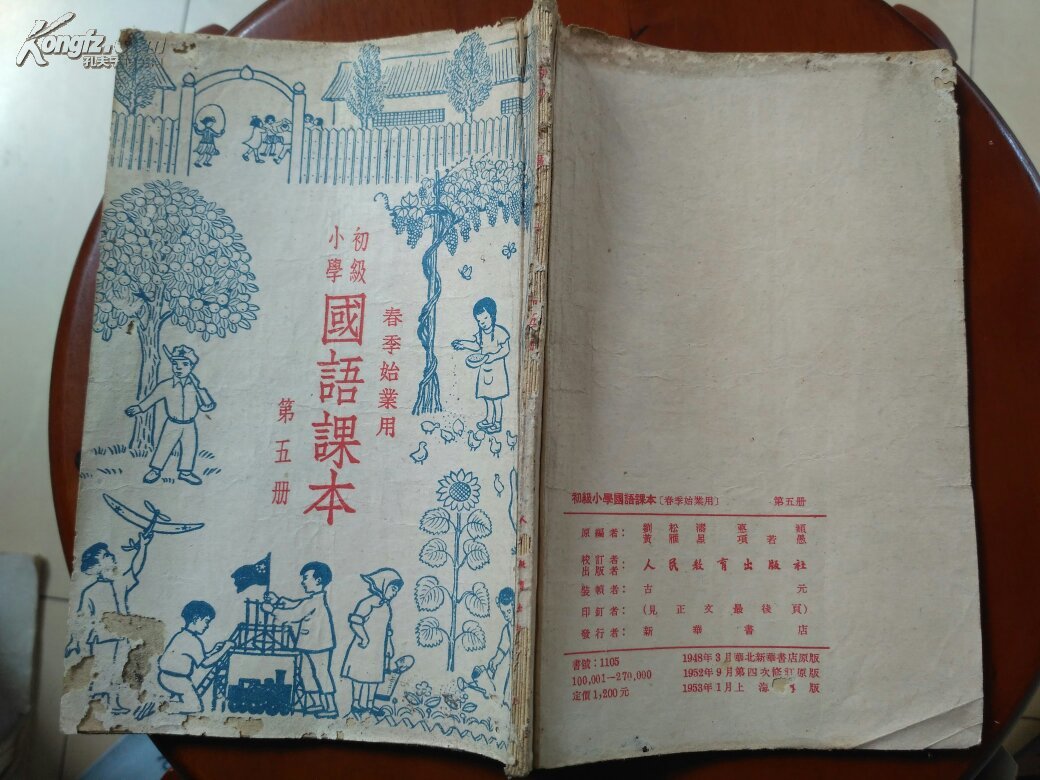 Kongfz.com
孔夫子旧书网
初級
小學
國語課本
春季始業用
第五册
初級小學國語課本〔春季始業用〕 第五册
原編者： 劉松濤 惠頴
黃雁星 項若愚
校訂者
出版者： 人民教育出版社
裝幀者： 古元
印釘者： (見正文最後頁)
發行者： 新華書店
書號：1105
100,001—270,000
定價1,200元
1948年3月華北新華書店原版
1952年9月第四次修訂原版
1953年1月上海 版